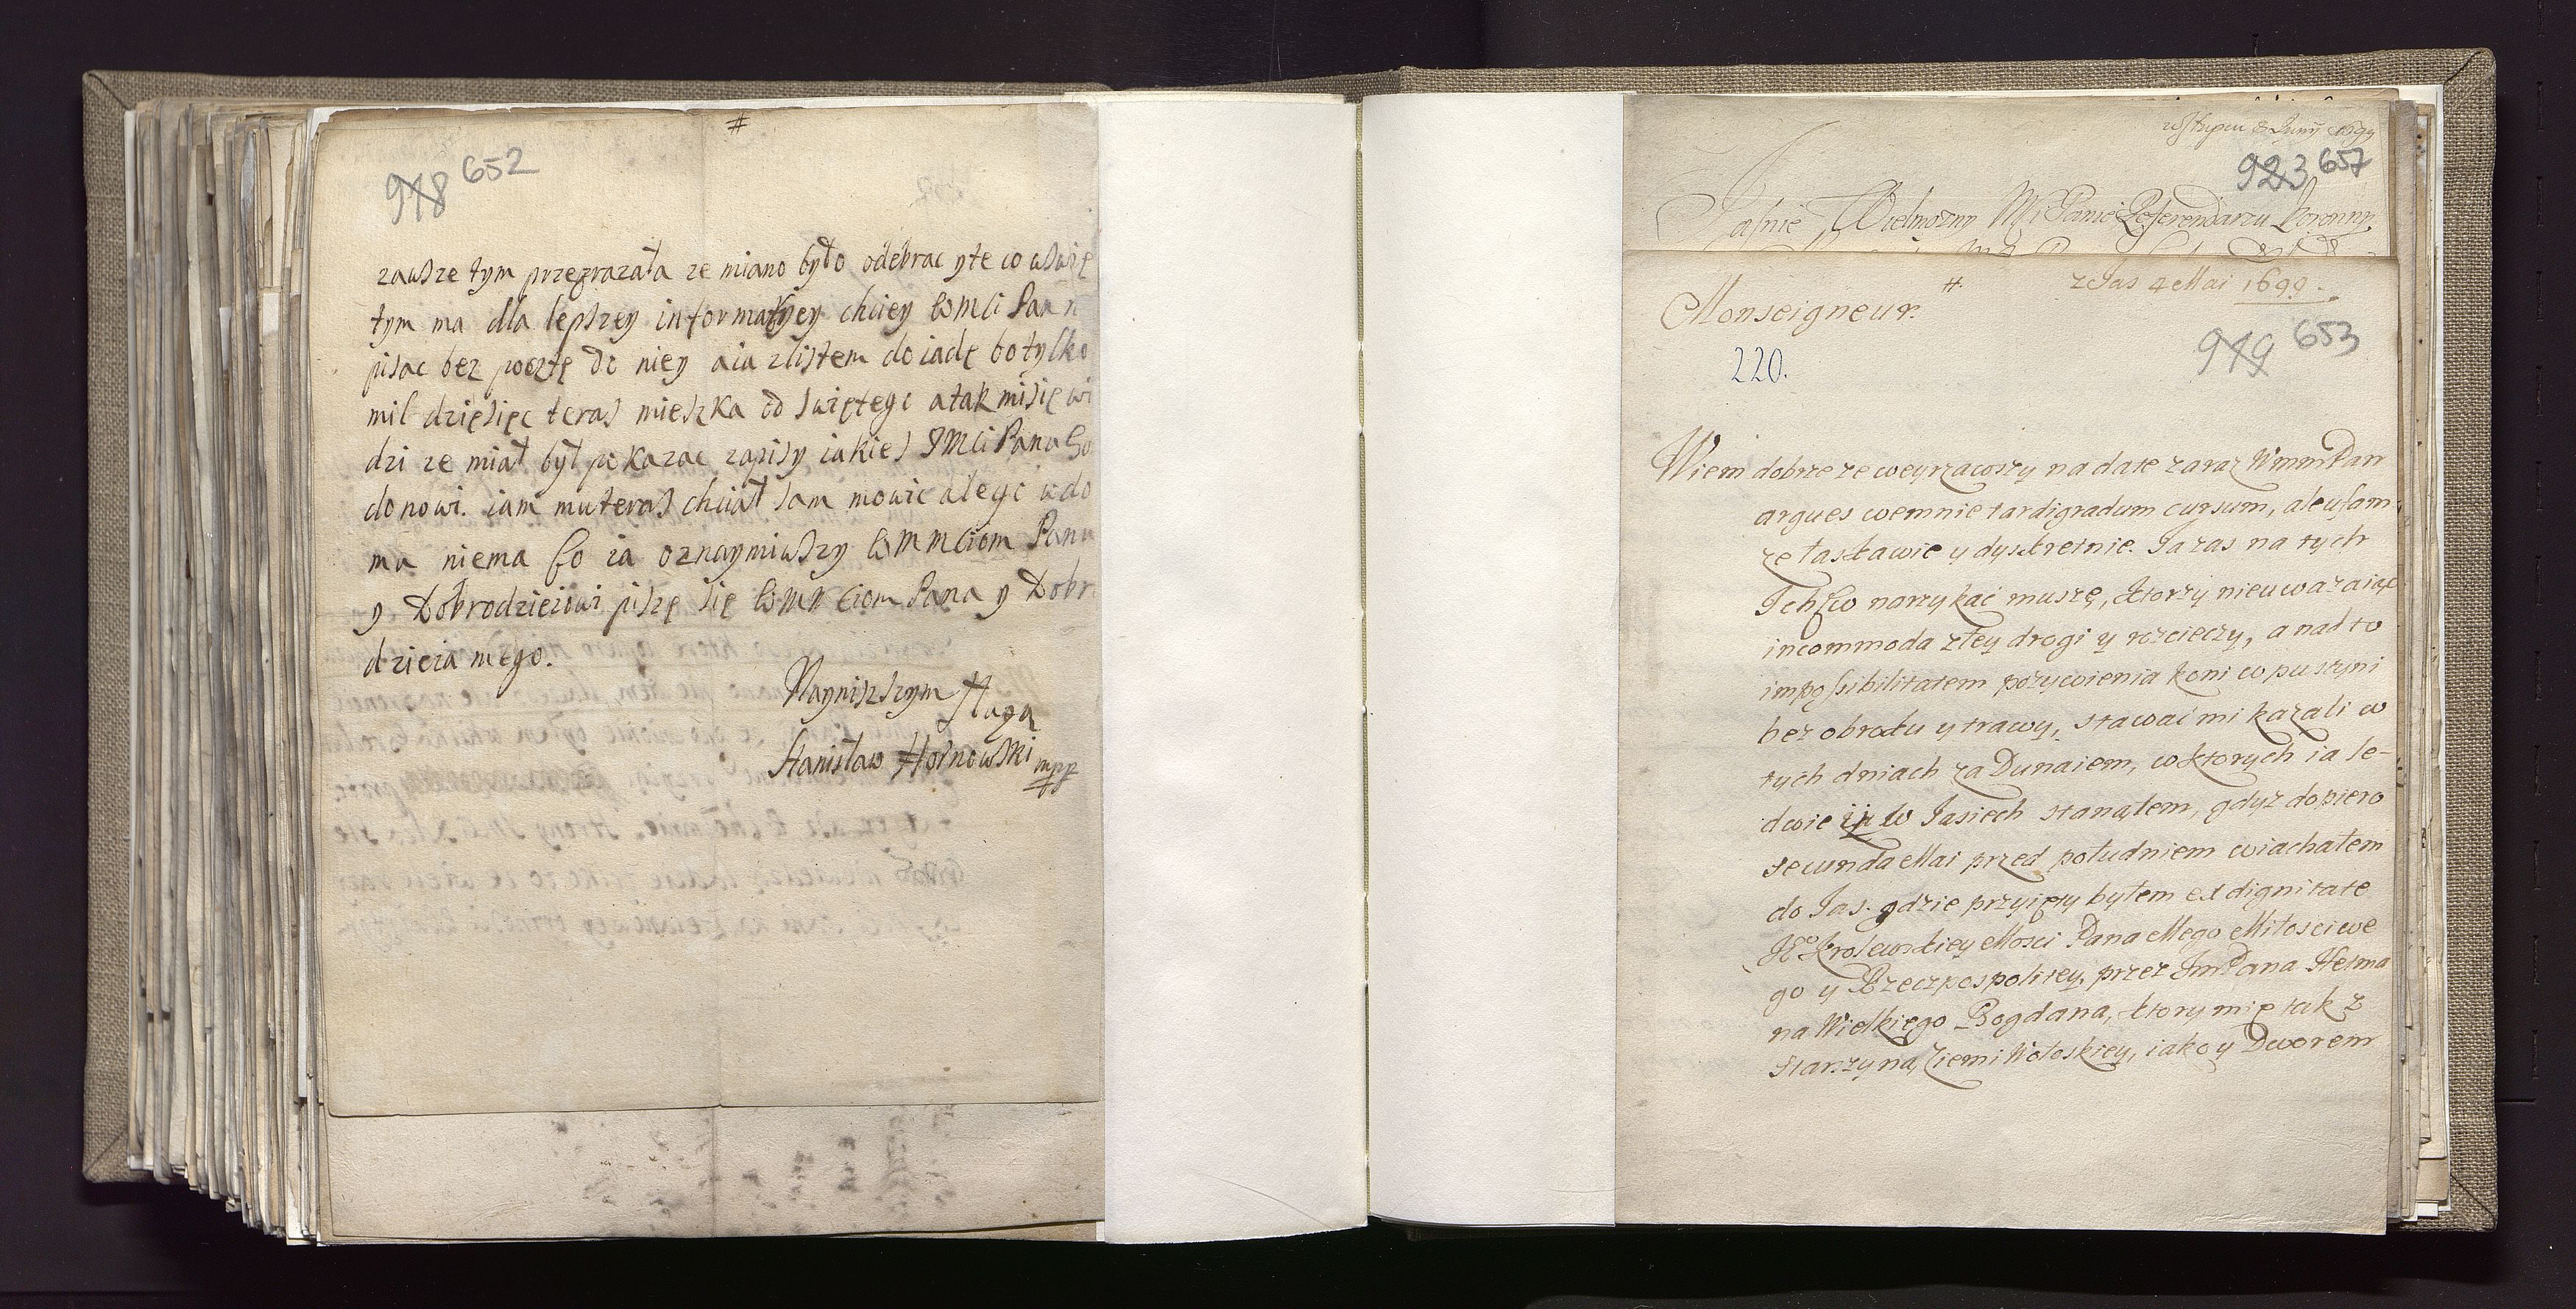 #
918 652
zawsze tym przegrazała ze miano było odebrac yte co wswię
tym ma dla lepszey informatyey chciey WMCi Pan n
pisac bez pocztę do niey aia zlistem do iadę bo tylko
mil dzięsięc teras mieszka od swiętego atak misię wi
dzi ze miał był pokazac zapisy iakies JMCi Panu
donowi. iam muteras chciał sam mowic alego wdo
ma niema Co ia oznaymiwszy WMMCiom Panu
y Dobrodzieiowi piszę się WMMCiom Pana y Dobr
dzieia mego.
Naynizszym sługą
Stanisław Hornowski mpp
8 Junÿ 1699
923 657
Jasnie Wielmozny Mci Panie Referendarzu Koronny
z Jas 4 Mai 1699.
#
Monseigneur.
919 653
220.
Wiem dobrze ze weyrzawszy na date zaraz WmmPan
argues wemnie tardigradum cursum, ale ufam,
ze łaskawie y dyskretnie. Ja zas na tych
Ichmw narzykać muszę, ktorzy nieuwazaiąc
incommoda złey drogi y rozcieczy, a nad to
impossibilitatem pozywienia koni w pustyni
bez obroku y trawy, stawać mi kazali w
tych dniach za Dunaiem, w ktorych ia le-
dwie w Jasiech stanąłem, gdyż dopiero
secunda Mai przed południem wiachałem
do Jas. gdzie przyięty byłem ex dignitate
JKo Krolewskiey Mosci Pana Mego Miłosciwe
go y Rzeczpospolitey, przez JmPana Hetma
na Wielkiego Bogdana, ktory mię tak z
starzyną Ziemi Wołoskiey, iako y Dworem